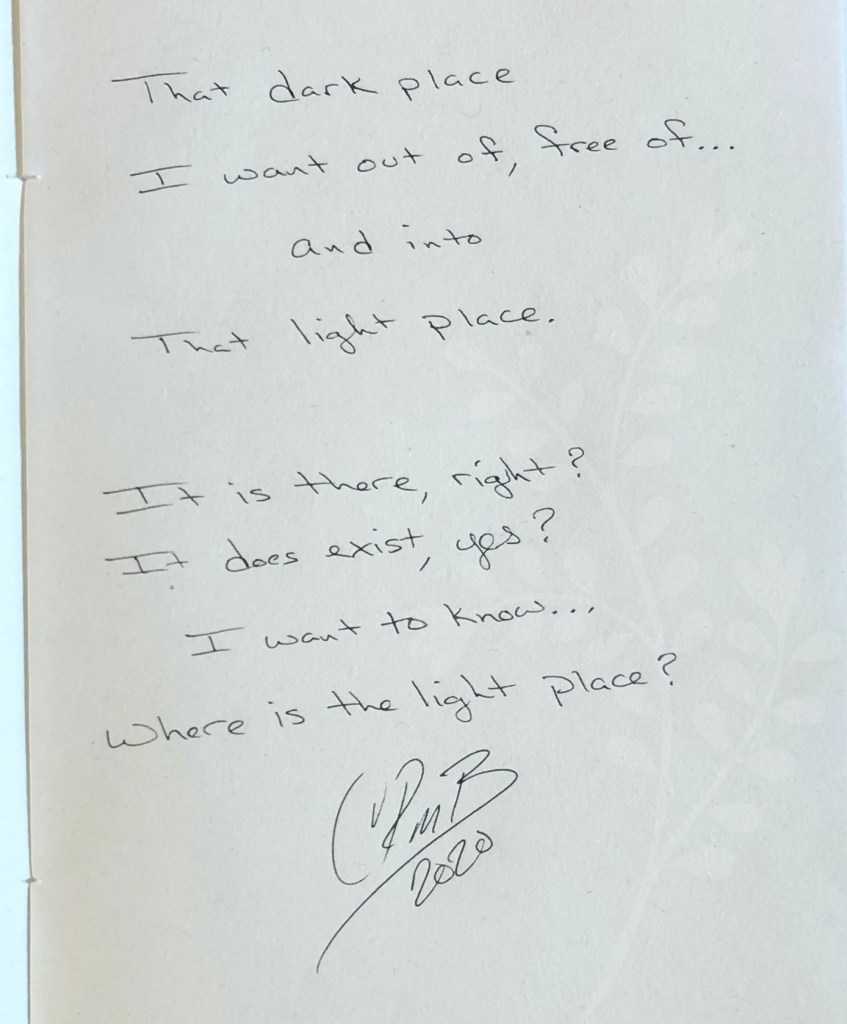 That dark place
I want out of, free of...
and into
That light place.
It is there, right?
It does exist, yes?
I want to know...
Where is the light place?
2020